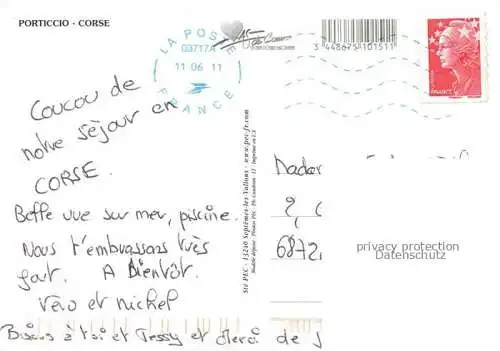 PORTICCIO - CORSE
LA POSTE
03717A
11 06 11
FRANCE
3 448675 101511
FRANCE
Coucou de
notre séjour en
CORSE.
Belle vue sur mer, piscine.
Nous t'embrassons très
fort. A Bientôt.
Véro et Michel
Bisous à toi et Jessy et Merci de
Sté PEC - 13240 Septèmes-les-Vallons - www.pec-fr.com
Madame
2,
6872
privacy protection
Datenschutz